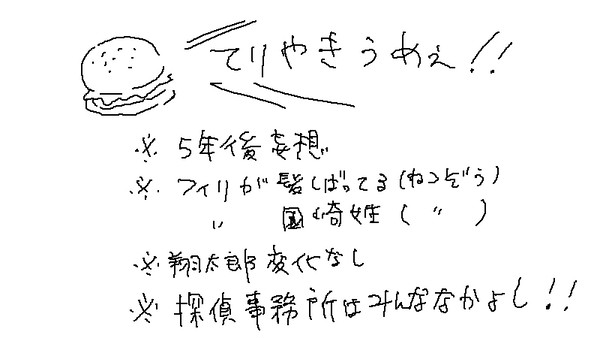 てりやきうめぇ!!
※ 5年後妄想
※ フィリが髪しばってる(ねつぞう)
〃 園崎姓 ( 〃 )
※ 翔太郎変化なし
※ 探偵事務所はみんななかよし!!